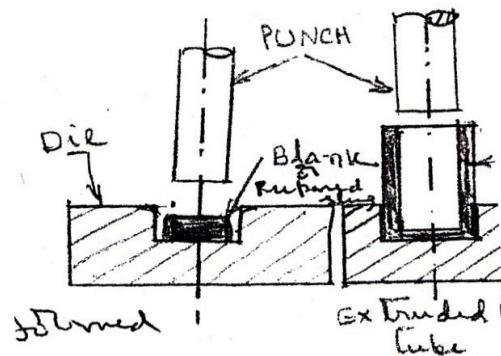 PUNCH
Die
Blank
or
Prepared
slug
formed
Extruded
Tube